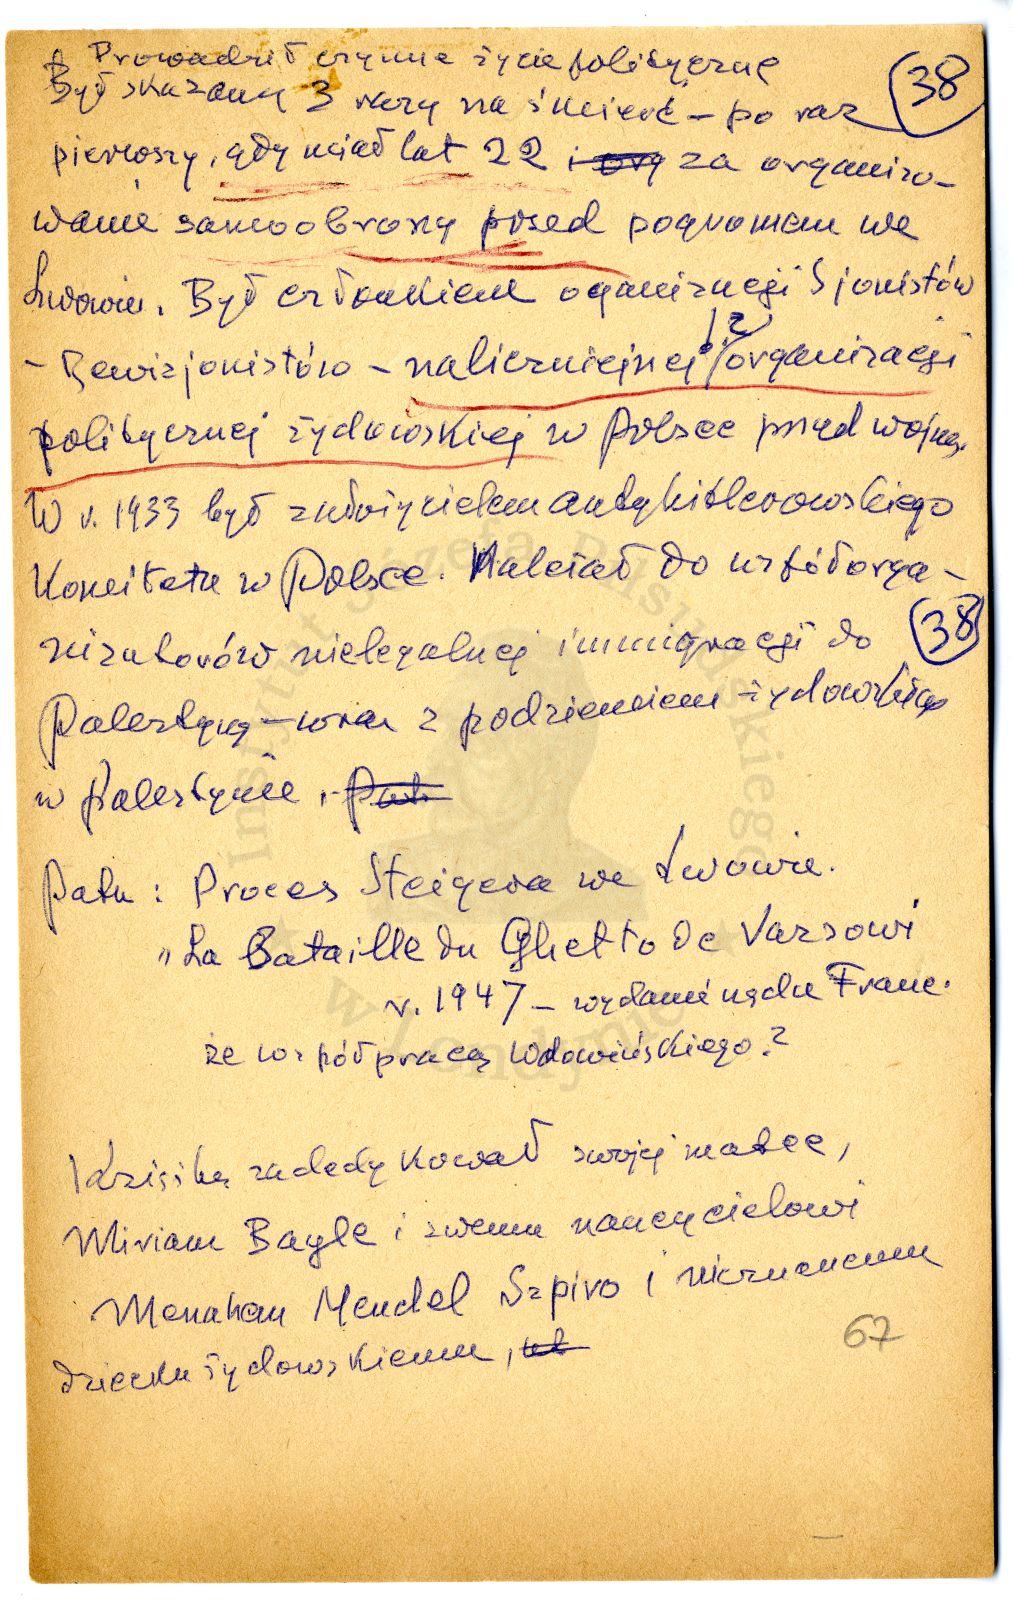 Prowadził czynne życie polityczne
Był skazany 3 razy na śmierć – po raz (38)
pierwszy, gdy miał lat 22 i org za organizo-
wanie samoobrony przed pogromem we
Lwowie. Był członkiem oganizacji Sjonistów
- Rewizjonistów – naliczniejnej organizacji
!?
politycznej żydowskiej w Polsce przed wojną.
W r. 1933 był założycielem antyhitlerowskiego
Komitetu w Polsce. Należał do współorga-
nizatorów nielegalnej immigracji do (38)
Palestyny – wraz z podziemiem żydowskim
w Palestynie.
Patu: Proces Steigera we Lwowie.
"La Bataille du Ghetto de Varsowi
r. 1947 – wydanie rządu Franc.
ze współpracą Wdowińskiego.?
Książkę zadedykował swojej matce,
Miriam Bayle i swemu nauczycielowi
Menaham Mendel Szpiro i nieznanemu
dziecku żydowskiemu,
67
Instytut Józefa Piłsudskiego
w Londynie